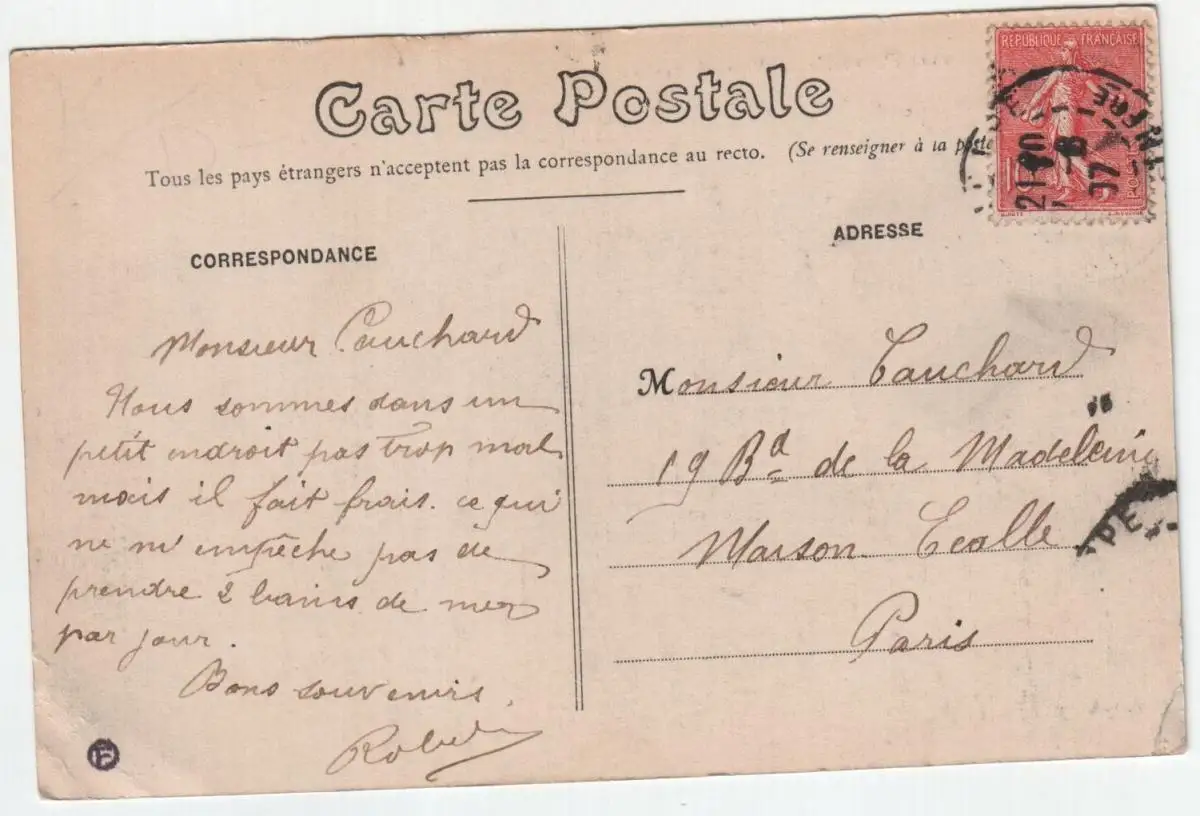 RÉPUBLIQUE FRANÇAISE
Carte Postale
Tous les pays étrangers n'acceptent pas la correspondance au recto. (Se renseigner à la poste
21 8
07
POSTES
CORRESPONDANCE
ADRESSE
Monsieur Cauchard
Nous sommes dans un
petit endroit pas trop mal
mais il fait frais. ce qui
ne m'empêche pas de
prendre 2 bains de mer
par jour.
Bons souvenirs.
Monsieur Cauchard
19 Bd de la Madeleine
Maison
Paris